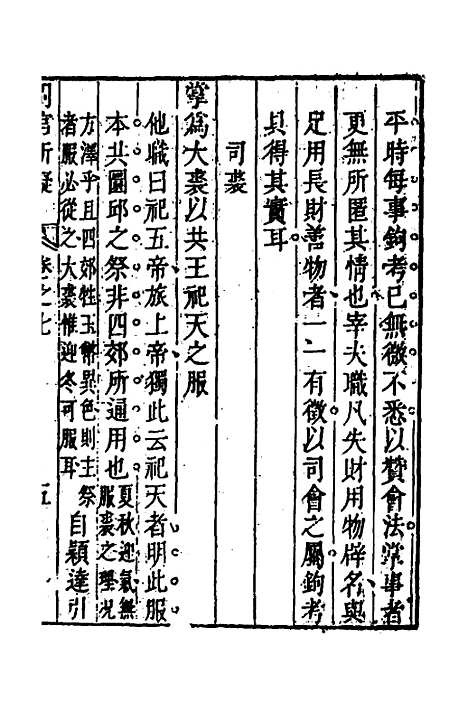 平時每事鉤考已無微不悉以贊會法掌事者
更無所匿其情也宰夫職凡失財用物辟名與
足用長財善物者一一有徵以司會之屬鉤考
具得其實耳
司裘
掌爲大裘以共王祀天之服
他職曰祀五帝旅上帝獨此云祀天者明此服
本共圜邱之祭非四郊所通用也夏秋迎氣無服裘之理況
方澤乎且四郊牲玉幣異色則主祭
者服必從之大裘惟迎冬可服耳自穎達引
周官析疑 卷之七 五